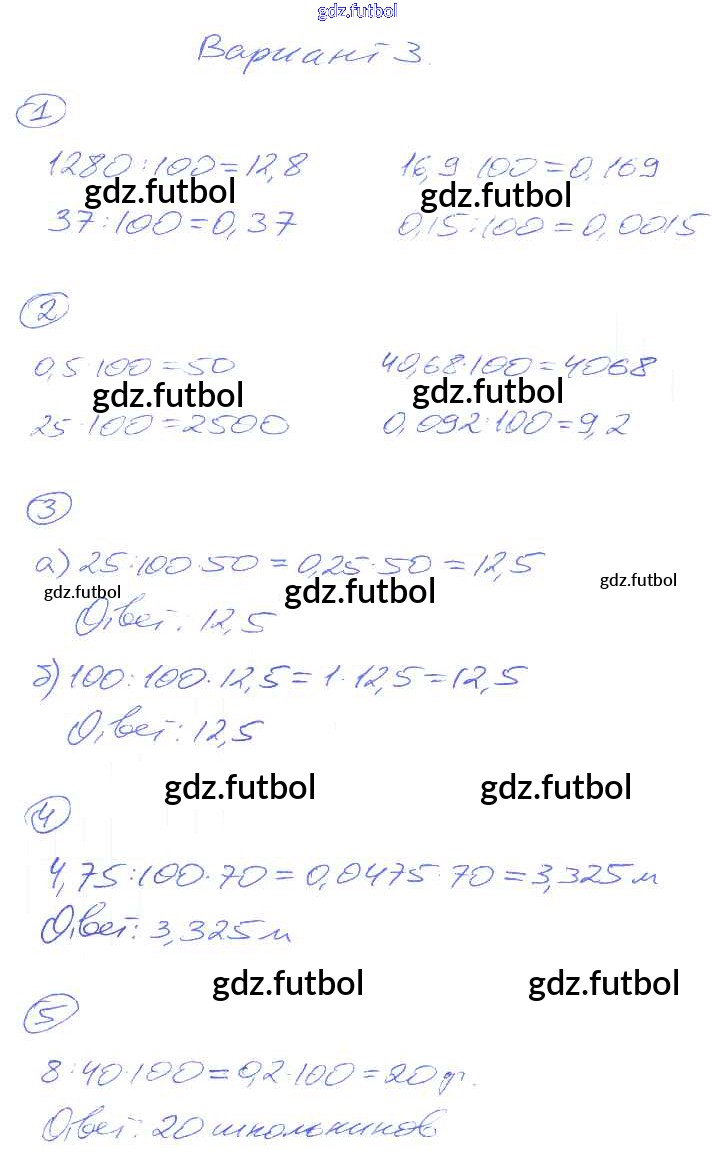 gdz.futbol
Вариант 3.
1
1280:100=12,8 16,9 100=0,169
gdz.futbol gdz.futbol
37:100=0,37 0,15:100=0,0015
2
0,5·100=50 40,68·100=4068
gdz.futbol gdz.futbol
25·100=2500 0,092·100=9,2
3
а) 25:100·50=0,25·50=12,5
gdz.futbol gdz.futbol gdz.futbol
Ответ: 12,5
б) 100:100·12,5=1·12,5=12,5
Ответ: 12,5
gdz.futbol gdz.futbol
4
4,75:100·70=0,0475·70=3,325 м
Ответ: 3,325 м
gdz.futbol gdz.futbol
5
8:40·100=0,2·100=20 уч.
Ответ: 20 школьников